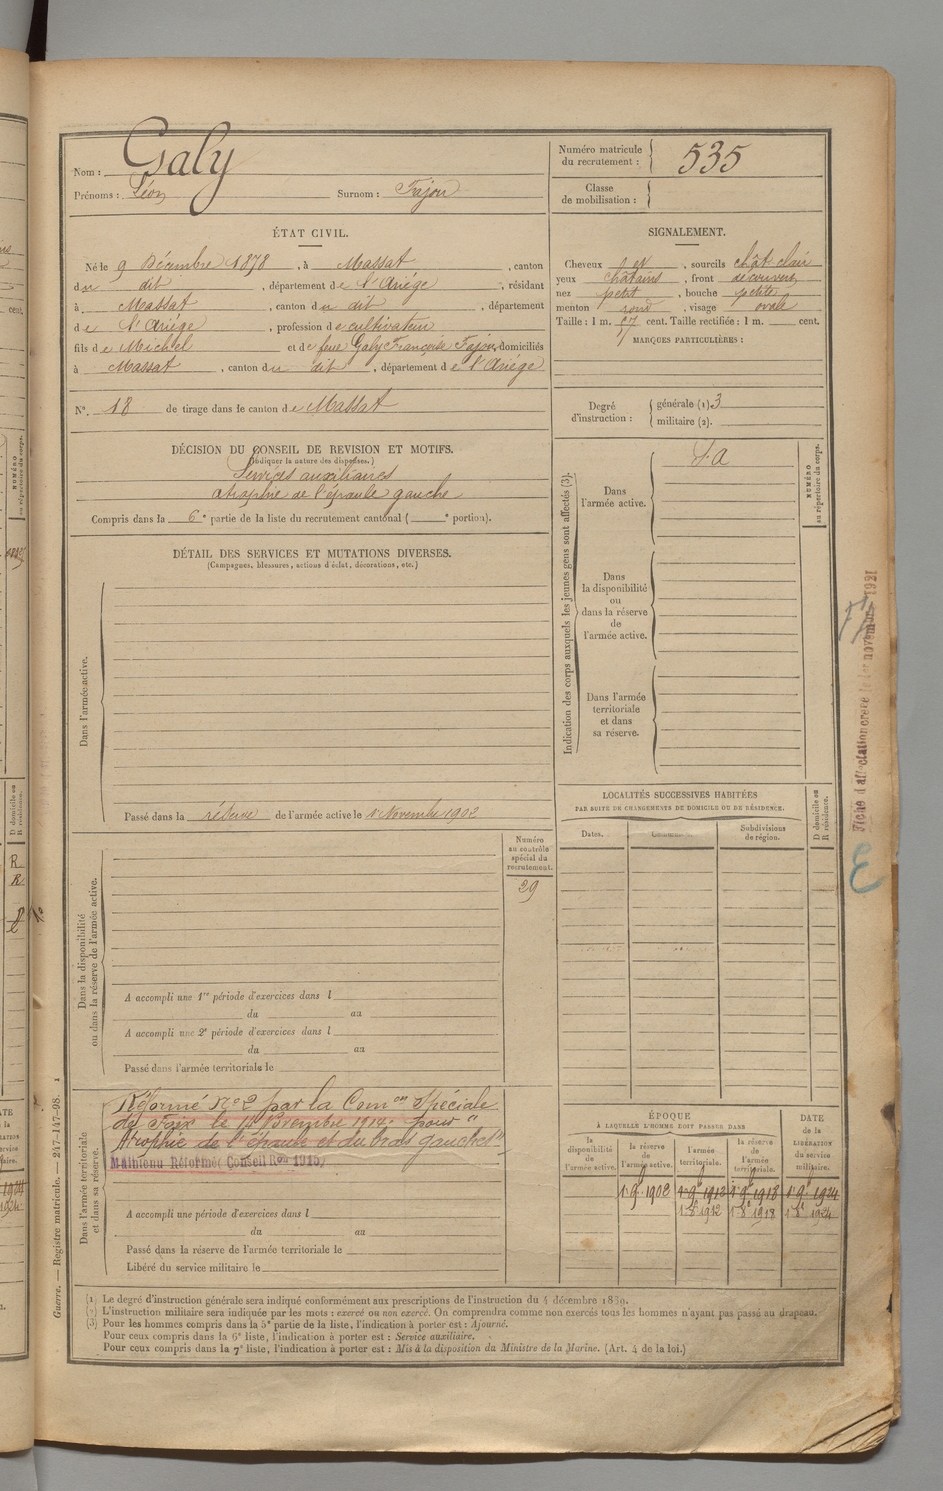 Nom : Galy
Prénoms : Léon Surnom : Fajou
Numéro matricule du recrutement : 535
Classe de mobilisation :
ÉTAT CIVIL.
Né le 9 Décembre 1878, à Massat, canton
du dit, département de l'Ariége, résidant
à Massat, canton du dit, département
de l'Ariége, profession de cultivateur
fils de Michel et de feue Galy Françoise Fajou, domiciliés
à Massat, canton du dit, département de l'Ariége
N° 18 de tirage dans le canton de Massat
SIGNALEMENT.
Cheveux, sourcils chât clair
yeux châtains, front découvert
nez petit, bouche petite
menton rond, visage ovale
Taille : 1 m. cent. Taille rectifiée : 1 m. cent.
MARQUES PARTICULIÈRES :
Degré d'instruction : générale (1) 3
militaire (2).
DÉCISION DU CONSEIL DE REVISION ET MOTIFS.
(Indiquer la nature des dispenses.)
Services auxiliaires
atrophie de l'épaule gauche
Compris dans la 6e partie de la liste du recrutement cantonal ( e portion).
DÉTAIL DES SERVICES ET MUTATIONS DIVERSES.
(Campagnes, blessures, actions d'éclat, décorations, etc.)
Dans l'armée active.
Passé dans la réserve de l'armée active le 1 Novembre 1902
Indication des corps auxquels les jeunes gens sont affectés (3).
Dans l'armée active.
S.A
Dans la disponibilité ou dans la réserve de l'armée active.
Dans l'armée territoriale et dans sa réserve.
NUMÉRO au répertoire du corps.
LOCALITÉS SUCCESSIVES HABITÉES
PAR SUITE DE CHANGEMENTS DE DOMICILE OU DE RÉSIDENCE.
Dates.
Subdivisions de région.
D domicile ou R résidence.
Dans la disponibilité ou dans la réserve de l'armée active.
Numéro au contrôle spécial du recrutement.
29
A accompli une 1re période d'exercices dans l
du au
A accompli une 2e période d'exercices dans l
du au
Passé dans l'armée territoriale le
Dans l'armée territoriale et dans sa réserve.
Réformé N°2 par la Comon Spéciale
de Foix le 14 Novembre 1914 pour "
Atrophie de l'épaule et du bras gauches"
Maintenu Réformé (Conseil Ron 1915)
A accompli une période d'exercices dans l
du au
Passé dans la réserve de l'armée territoriale le
Libéré du service militaire le
ÉPOQUE
À LAQUELLE L'HOMME DOIT PASSER DANS
la disponibilité de l'armée active.
la réserve de l'armée active.
l'armée territoriale.
la réserve de l'armée territoriale.
DATE de la LIBÉRATION du service militaire.
1 9bre 1902 1 9bre 1912 1 9bre 1918 1 9bre 1924
1 8bre 1912 1 8bre 1918 1 8bre 1924
(1) Le degré d'instruction générale sera indiqué conformément aux prescriptions de l'instruction du 4 décembre 1889.
(2) L'instruction militaire sera indiquée par les mots : exercé ou non exercé. On comprendra comme non exercés tous les hommes n'ayant pas passé au drapeau.
(3) Pour les hommes compris dans la 5e partie de la liste, l'indication à porter est : Ajourné.
Pour ceux compris dans la 6e liste, l'indication à porter est : Service auxiliaire.
Pour ceux compris dans la 7e liste, l'indication à porter est : Mis à la disposition du Ministre de la Marine. (Art. 4 de la loi.)
Guerre. — Registre matricule. — 247-147-98.
novembre 1921